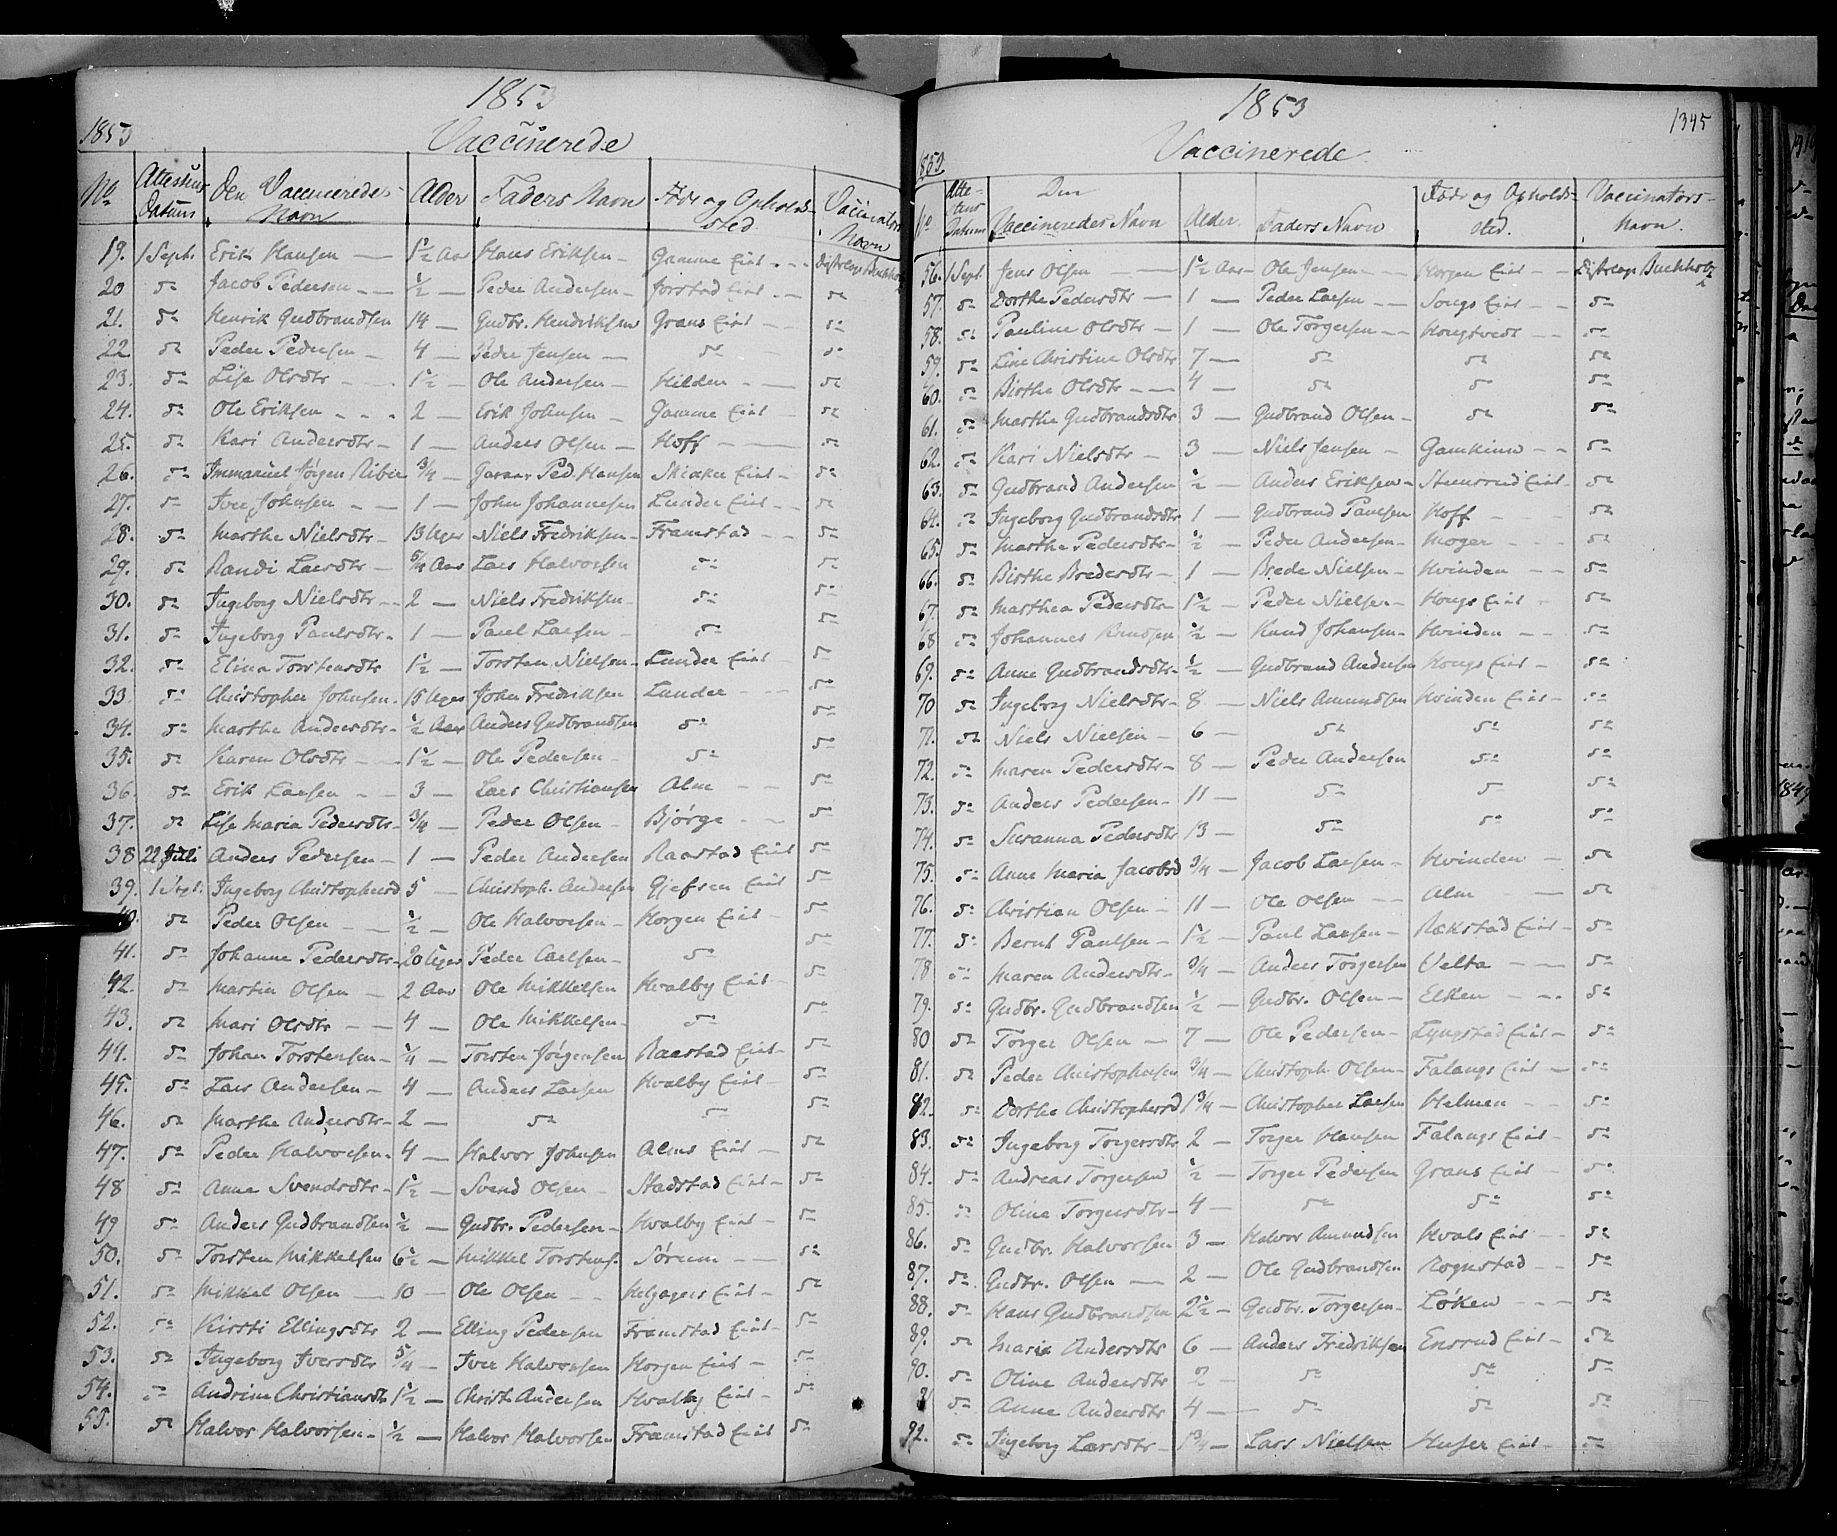 1853
1853
Vaccinerede
No Attestens Datum Den Vaccineredes Navn Alder Faders Navn Føde og Opholdssted Vaccinators Navn
19. 1 Sept. Erik Hansen — 1½ Aar Hans Eriksen — Gamme Eiet - Distrlæge Buchholz
20 do Jacob Pedersen — ½ — Peder Andersen — Jorstad Eiet - do
21. do Henrik Gudbrandsen 14 — Gudbr. Hendriksen Grans Eiet - do
22 do Peder Pedersen — 4 — Peder Jensen — do do
23. do Lise Olsdtr - 1½ — Ole Andersen — Hilden — do
24. do Ole Eriksen - 2 — Erik Johnsen — Gamme Eiet - do
25. do Kari Andersdtr - 1 — Anders Olsen — Hoff — do
26. do Immanuel Jørgen Riber ¾ — Ped Hansen Skiaker Eiet - do
27. do Iver Johnsen — 1 — John Johannesen Lunder Eiet - do
28. do Marthe Nielsdtr - 13 Uger Niels Fredriksen - Framstad - do
29. do Randi Larsdtr - 5/4 Aar Lars Halvorsen do do
30. do Ingeborg Nielsdtr - 2 — Niels Fredriksen - do do
31. do Ingeborg Paulsdtr - 1 — Paul Larsen - do do
32. do Elina Torstensdtr 1½ — Torsten Nielsen - Lunder Eiet do
33. do Christopher Johnsen - 15 Uger John Fredriksen Lunder - do
34. do Marthe Andersdtr - ½ Aar Anders Gudbrandsen do do
35. do Karen Olsdtr - 1½ — Ole Pedersen - do do
36. do Erik Larsen - 3 — Lars Christiansen Alm - do
37. do Lise Maria Pedersdtr - ¾ — Peder Olsen - Bjørge - do
38 22 Juli Anders Pedersen - 1 — Peder Andersen Raastad Eiet do
39. 1 Sept. Ingeborg Christophersd 5 — Christoph. Andersen Gjefsen Eiet do
40. do Peder Olsen - ½ — Ole Halvorsen - Horgen Eiet - do
41. do Johanne Pedersdtr - 20 Uger Peder Carlsen - do do
42. do Martin Olsen — 2 Aar Ole Mikkelsen Hvalby Eiet - do
43. do Mari Olsdtr - 4 — Ole Mikkelsen - do do
44. do Johan Torstensen - ¼ — Torsten Jørgensen Raastad Eiet - do
45. do Lars Andersen - 4 — Anders Larsen Hvalby Eiet - do
46. do Marthe Andersdtr - 2 — do do do
47. do Peder Halvorsen - 4 — Halvor Johnsen Alms Eiet - do
48 do Anne Svendsdtr - 1½ — Svend Olsen - Stadstad Eiet - do
49 do Anders Gudbrandsen ½ — Gudbr. Pedersen - Hvalby Eiet - do
50. do Torsten Mikkelsen 6½ — Mikkel Torstens. Sørum — do
51. do Mikkel Olsen — 10 — Ole Olsen - Helgagers Eiet - do
52. do Kirsti Ellingsdtr 2 — Elling Pedersen Framstad Eiet - do
53. do Ingeborg Iversdtr 5/4 — Iver Halvorsen Horgen Eiet - do
54. do Andrine Christiansdtr 1½ — Christ. Andersen Hvalby Eiet - do
55. do Halvor Halvorsen - ½ — Halvor Halvorsen Framstad Eiet do
1853
1345
1853
Vaccinerede
No Attestens Datum Den Vaccineredes Navn Alder. Faders Navn Føde og Opholdssted. Vaccinators Navn.
56. 1 Sept. Jens Olsen — 1½ Aar - Ole Jensen — Horgen Eiet - Distrlæge Buchholz
57. do Dorthe Pedersdtr — 1 — Peder Larsen - Songs Eiet - do
58. do Pauline Olsdtr — 1 — Ole Torgersen - Hougstvedt - do
59. do Line Christine Olsdtr 7 — do do do
60. do Birthe Olsdtr — 4 — do do do
61. do Marthe Gudbrandsdtr 3 — Gudbrand Olsen - do do
62. do Kari Nielsdtr - 3 — Niels Jensen - Gamkinn - do
63. do Gudbrand Andersen ½ — Anders Eriksen - Steensrud Eiet - do
64. do Ingeborg Gudbrandsdtr 1 — Gudbrand Paulsen Hoff - do
65. do Marthe Pedersdtr - ½ — Peder Andersen - Moger - do
66. do Birthe Bredesdtr - 1 — Brede Nielsen - Hvinden - do
67. do Marthea Pedersdtr - 1½ — Peder Nielsen - Hougs Eiet - do
68 do Johannes Knudsen ½ — Knud Johansen - Hvinden - do
69. do Anne Gudbrandsdtr - ½ — Gudbrand Andersen Hougs Eiet - do
70 do Ingeborg Nielsdtr - 8 — Niels Amundsen Hvinden Eiet - do
71. do Niels Nielsen - 6 — do do do
72. do Maren Pedersdtr - 8 — Peder Andersen do do
73. do Anders Pedersen - 11 — do do do
74. do Susanna Pedersdtr 13 — do do do
75. do Anne Maria Jacobsd ¾ — Jacob Larsen - Hvinden - do
76. do Christian Olsen - 11 — Ole Olsen - Alm — do
77. do Bernt Paulsen - 1½ — Paul Larsen - Rækstad Eiet - do
78 do Maren Andersdtr - ¾ — Anders Torgersen Velta — do
79. do Gudbr. Gudbrandsen ½ — Gudbr. Olsen - Elken - do
80 do Torger Olsen — 7 — Ole Pedersen - Lyngstad Eiet - do
81. do Peder Christophersen ¾ — Christoph. Olsen - Falangs Eiet - do
82. do Dorthe Christophersd 1¾ — Christopher Larsen Helmen - do
83. do Ingeborg Torgersdtr 2 — Torger Hansen Falangs Eiet - do
84. do Andreas Torgersen ½ — Torger Pedersen Grans Eiet - do
85. do Oline Torgersdtr - 4 — do do do
86. do Gudbr. Halvorsen 3 — Halvor Amundsen Hvals Eiet - do
87. do Gudbr. Olsen — 2 — Ole Gudbrandsen Rognstad - do
88. do Hans Gudbrandsen 2½ — Gudbr. Torgersen - Løken - do
89. do Maria Andersdtr 6 — Anders Fredriksen Ensrud Eiet - do
90. do Oline Andersdtr 2 — do do do
91 do Anne Andersdtr 4 — do do do
92. do Ingeborg Larsdtr - 1¾ — Lars Nielsen Huser Eiet - do